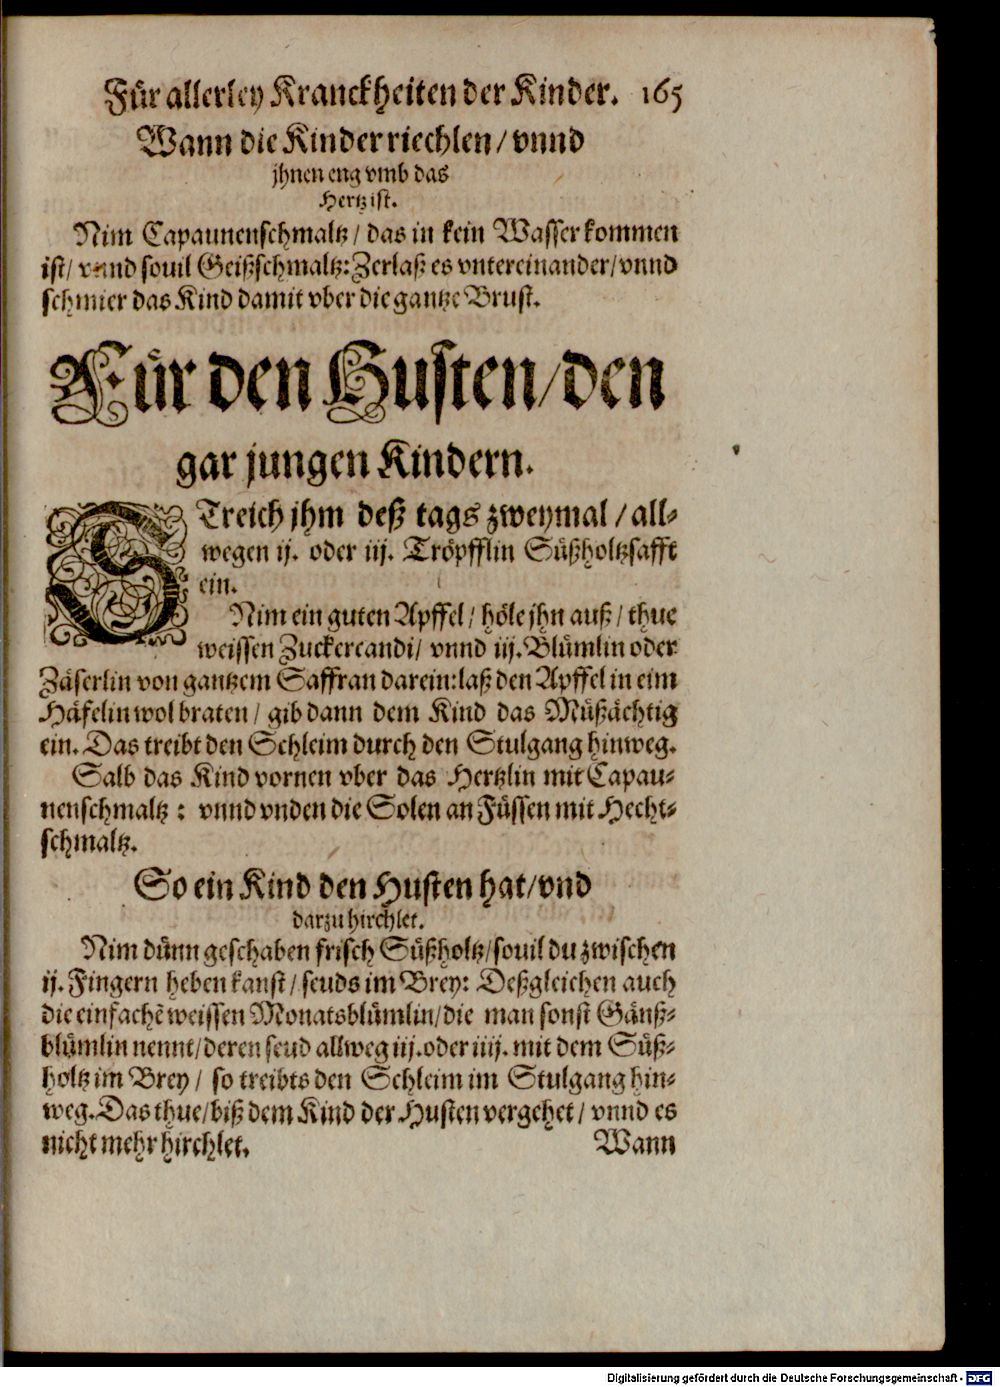 Für allerley Kranckheiten der Kinder. 165
Wann die Kinder riechlen / vnnd
jhnen eng vmb das
Hertz ist.
Nim Capaunenschmaltz / das in kein Wasser kommen
ist / vnnd souil Geißschmaltz: Zerlaß es vntereinander / vnnd
schmier das Kind damit vber die gantze Brust.
Für den Husten / den
gar jungen Kindern.
STreich jhm deß tags zweymal / all-
wegen ij. oder iij. Tröpfflin Süßholtzsafft
ein.
Nim ein guten Apffel / höle jhn auß / thue
weissen Zuckercandi / vnnd iij. Blümlin oder
Zäserlin von gantzem Saffran darein: laß den Apffel in eim
Häfelin wol braten / gib dann dem Kind das Müßächtig
ein. Das treibt den Schleim durch den Stulgang hinweg.
Salb das Kind vornen vber das Hertzlin mit Capau-
nenschmaltz : vnnd vnden die Solen an Füssen mit Hecht-
schmaltz.
So ein Kind den Husten hat / vnd
darzu hirchlet.
Nim dünn geschaben frisch Süßholtz / souil du zwischen
ij. Fingern heben kanst / seuds im Brey: Deßgleichen auch
die einfachẽ weissen Monatsblümlin / die man sonst Gänß-
blümlin nennt / deren seud allweg iij. oder iiij. mit dem Süß-
holtz im Brey / so treibts den Schleim im Stulgang hin-
weg. Das thue / biß dem Kind der Husten vergehet / vnnd es
nicht mehr hirchlet. Wann
Digitalisierung gefördert durch die Deutsche Forschungsgemeinschaft - DFG